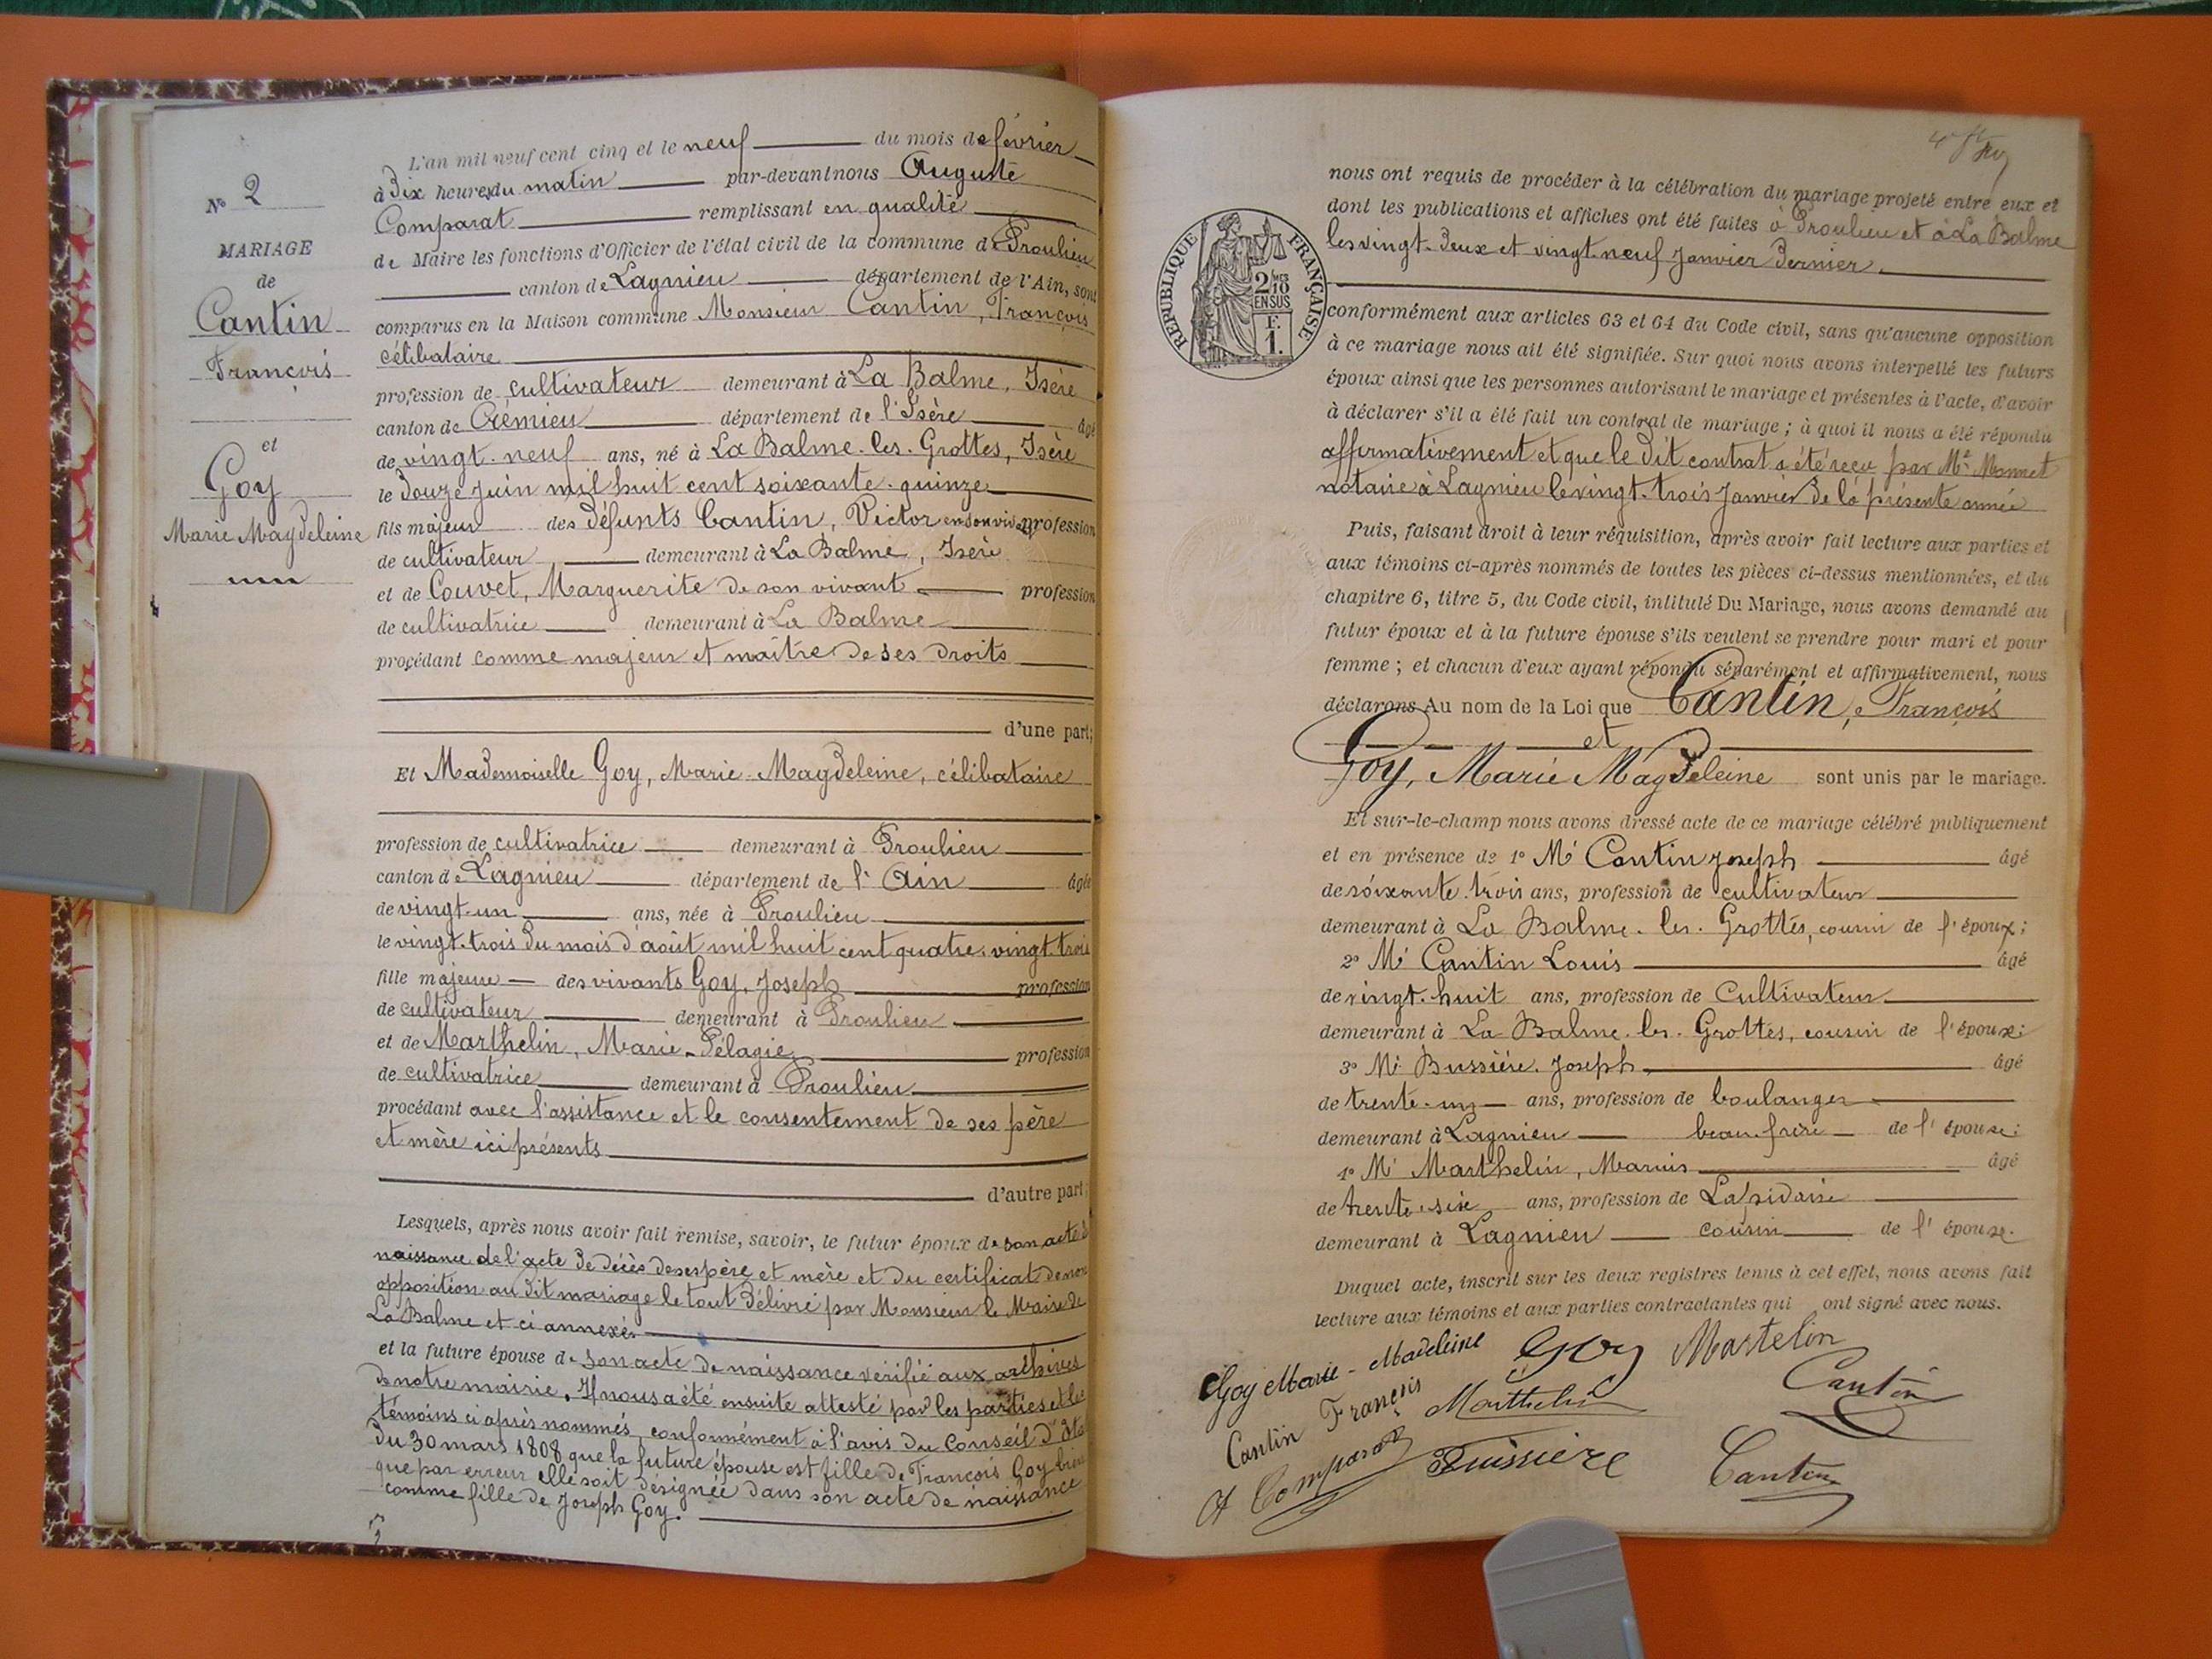 N° 2
MARIAGE
de
Cantin
François
et
Goy
Marie Magdeleine
L'an mil neuf cent cinq et le neuf du mois de février
à dix heures du matin par-devant nous Auguste
Comparat remplissant en qualité
de Maire les fonctions d'Officier de l'état civil de la commune de Proulieu
canton de Lagnieu département de l'Ain, sont
comparus en la Maison commune Monsieur Cantin, François
célibataire
profession de cultivateur demeurant à La Balme, Isère
canton de Crémieu département de l'Isère âgé
de vingt-neuf ans, né à La Balme-les-Grottes, Isère
le douze Juin mil huit cent soixante-quinze
fils majeur des défunts Cantin, Victor en son vivant profession
de cultivateur demeurant à La Balme, Isère
et de Couvet, Marguerite de son vivant profession
de cultivatrice demeurant à La Balme
procédant comme majeur et maître de ses droits
d'une part;
Et Mademoiselle Goy, Marie-Magdeleine, célibataire
profession de cultivatrice demeurant à Proulieu
canton de Lagnieu département de l'Ain âgée
de vingt-un ans, née à Proulieu
le vingt-trois du mois d'août mil huit cent quatre-vingt-trois
fille majeure des vivants Goy, Joseph profession
de cultivateur demeurant à Proulieu
et de Marthelin, Marie-Pélagie profession
de cultivatrice demeurant à Proulieu
procédant avec l'assistance et le consentement de ses père
et mère ici présents
d'autre part;
Lesquels, après nous avoir fait remise, savoir, le futur époux de son acte de
naissance de l'acte de décès de ses père et mère et du certificat de non
opposition au dit mariage le tout délivré par Monsieur le Maire de
La Balme et ci annexés
et la future épouse de son acte de naissance vérifié aux archives
de notre mairie. Il nous a été ensuite attesté par les parties et les
témoins ci après nommés, conformément à l'avis du Conseil d'Etat
du 30 mars 1808 que la future épouse est fille de François Goy bien
que par erreur elle soit désignée dans son acte de naissance
comme fille de Joseph Goy.
nous ont requis de procéder à la célébration du mariage projeté entre eux et
dont les publications et affiches ont été faites à Proulieu et à La Balme
les vingt-deux et vingt-neuf Janvier dernier.
RÉPUBLIQUE FRANÇAISE
2/10 EN SUS
F.
1.
conformément aux articles 63 et 64 du Code civil, sans qu'aucune opposition
à ce mariage nous ait été signifiée. Sur quoi nous avons interpellé les futurs
époux ainsi que les personnes autorisant le mariage et présentes à l'acte, d'avoir
à déclarer s'il a été fait un contrat de mariage; à quoi il nous a été répondu
affirmativement et que le dit contrat a été reçu par Me Monnet
notaire à Lagnieu le vingt-trois Janvier de la présente année
Puis, faisant droit à leur réquisition, après avoir fait lecture aux parties et
aux témoins ci-après nommés de toutes les pièces ci-dessus mentionnées, et du
chapitre 6, titre 5, du Code civil, intitulé Du Mariage, nous avons demandé au
futur époux et à la future épouse s'ils veulent se prendre pour mari et pour
femme; et chacun d'eux ayant répondu séparément et affirmativement, nous
déclarons Au nom de la Loi que Cantin, François
et
Goy, Marie Magdeleine sont unis par le mariage.
Et sur-le-champ nous avons dressé acte de ce mariage célébré publiquement
et en présence de 1° Mr Cantin Joseph âgé
de soixante-trois ans, profession de cultivateur
demeurant à La Balme-les-Grottes, cousin de l'époux;
2° Mr Cantin Louis âgé
de vingt-huit ans, profession de Cultivateur
demeurant à La Balme-les-Grottes, cousin de l'époux;
3° Mr Bussière Joseph âgé
de trente-un ans, profession de boulanger
demeurant à Lagnieu beau-frère de l'épouse;
4° Mr Marthelin, Marius âgé
de trente-six ans, profession de Lapidaire
demeurant à Lagnieu cousin de l'épouse.
Duquel acte, inscrit sur les deux registres tenus à cet effet, nous avons fait
lecture aux témoins et aux parties contractantes qui ont signé avec nous.
Goy Marie-Madeleine Goy Martelin
Cantin François Marthelin Cantin
A Comparat Bussière Cantin